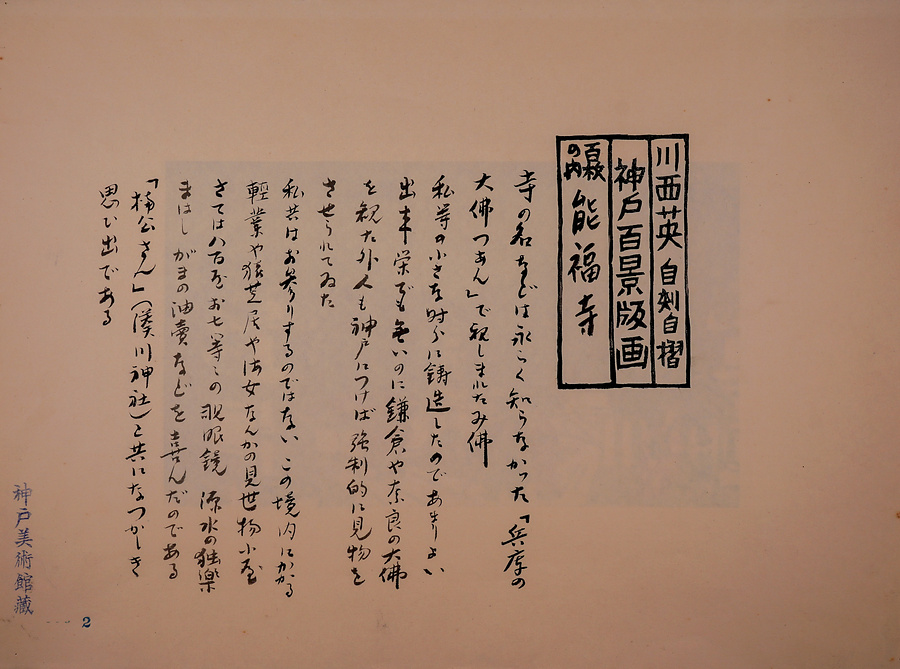 川西英 自刻自摺
神戸百景版画
百枚の内 能福寺
寺の名などは永らく知らなかった「兵庫の
大佛つあん」で親しまれたみ佛
私等の小さな時分に鋳造したのであまりよい
出来栄でも無いのに鎌倉や奈良の大佛
を観た外人も神戸につけば強制的に見物を
させられてゐた
私共はお参りするのではない この境内にかかる
軽業や猿芝居や海女なんかの見世物小屋
さては八百屋お七等々の覗眼鏡 源水の独楽
まはし がまの油賣などを喜んだのである
「楠公さん」(湊川神社)と共になつかしき
思ひ出である
神戸美術館藏
2